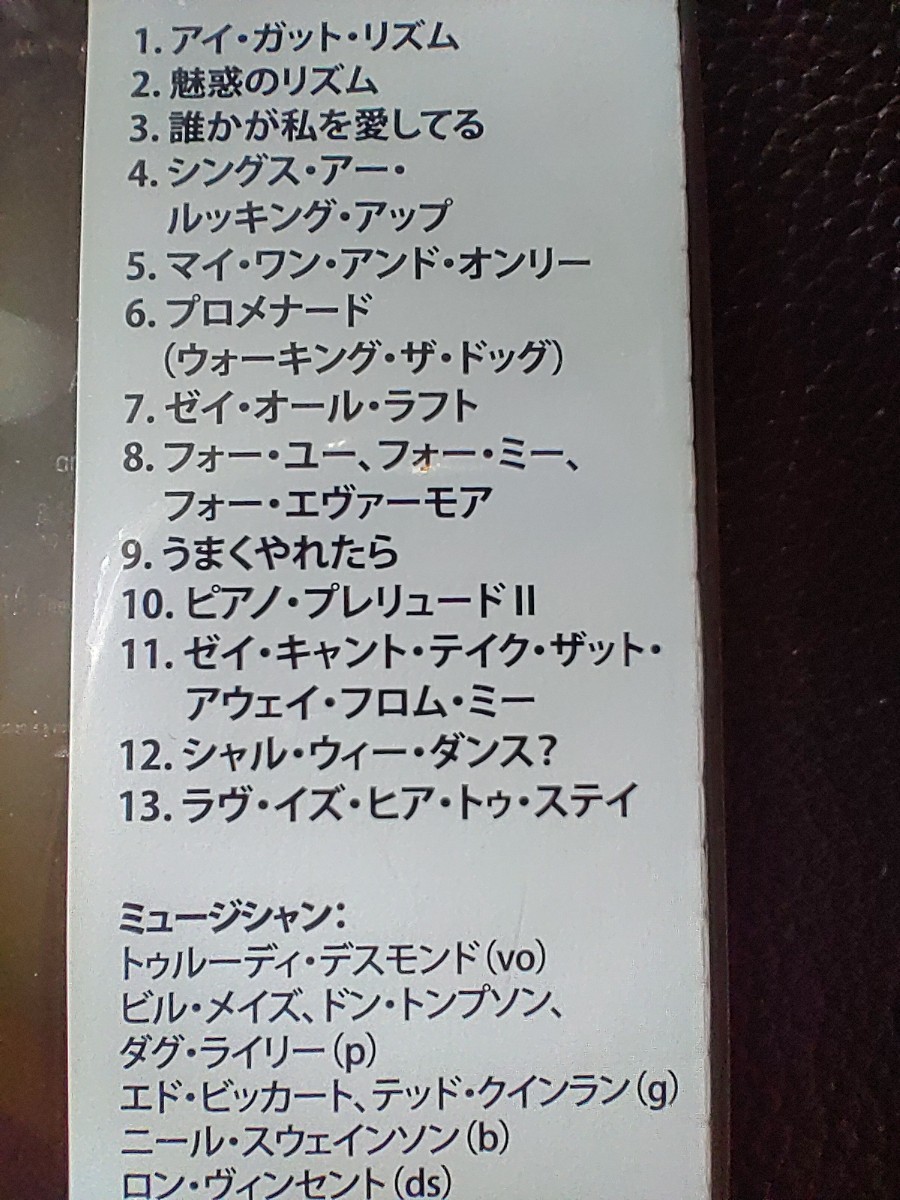 1. アイ・ガット・リズム
2. 魅惑のリズム
3. 誰かが私を愛してる
4. シングス・アー・
ルッキング・アップ
5. マイ・ワン・アンド・オンリー
6. プロメナード
(ウォーキング・ザ・ドッグ)
7. ゼイ・オール・ラフト
8. フォー・ユー、フォー・ミー、
フォー・エヴァーモア
9. うまくやれたら
10. ピアノ・プレリュードⅡ
11. ゼイ・キャント・テイク・ザット・
アウェイ・フロム・ミー
12. シャル・ウィー・ダンス?
13. ラヴ・イズ・ヒア・トゥ・ステイ
ミュージシャン:
トゥルーディ・デスモンド(vo)
ビル・メイズ、ドン・トンプソン、
ダグ・ライリー(p)
エド・ビッカート、テッド・クインラン(g)
ニール・スウェインソン(b)
ロン・ヴィンセント(ds)